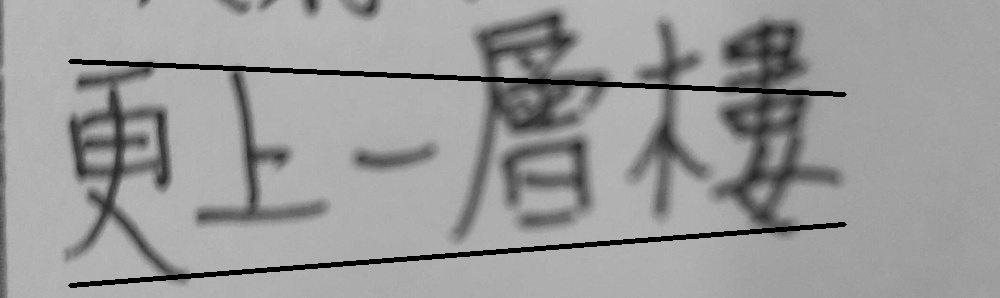 更上一層樓